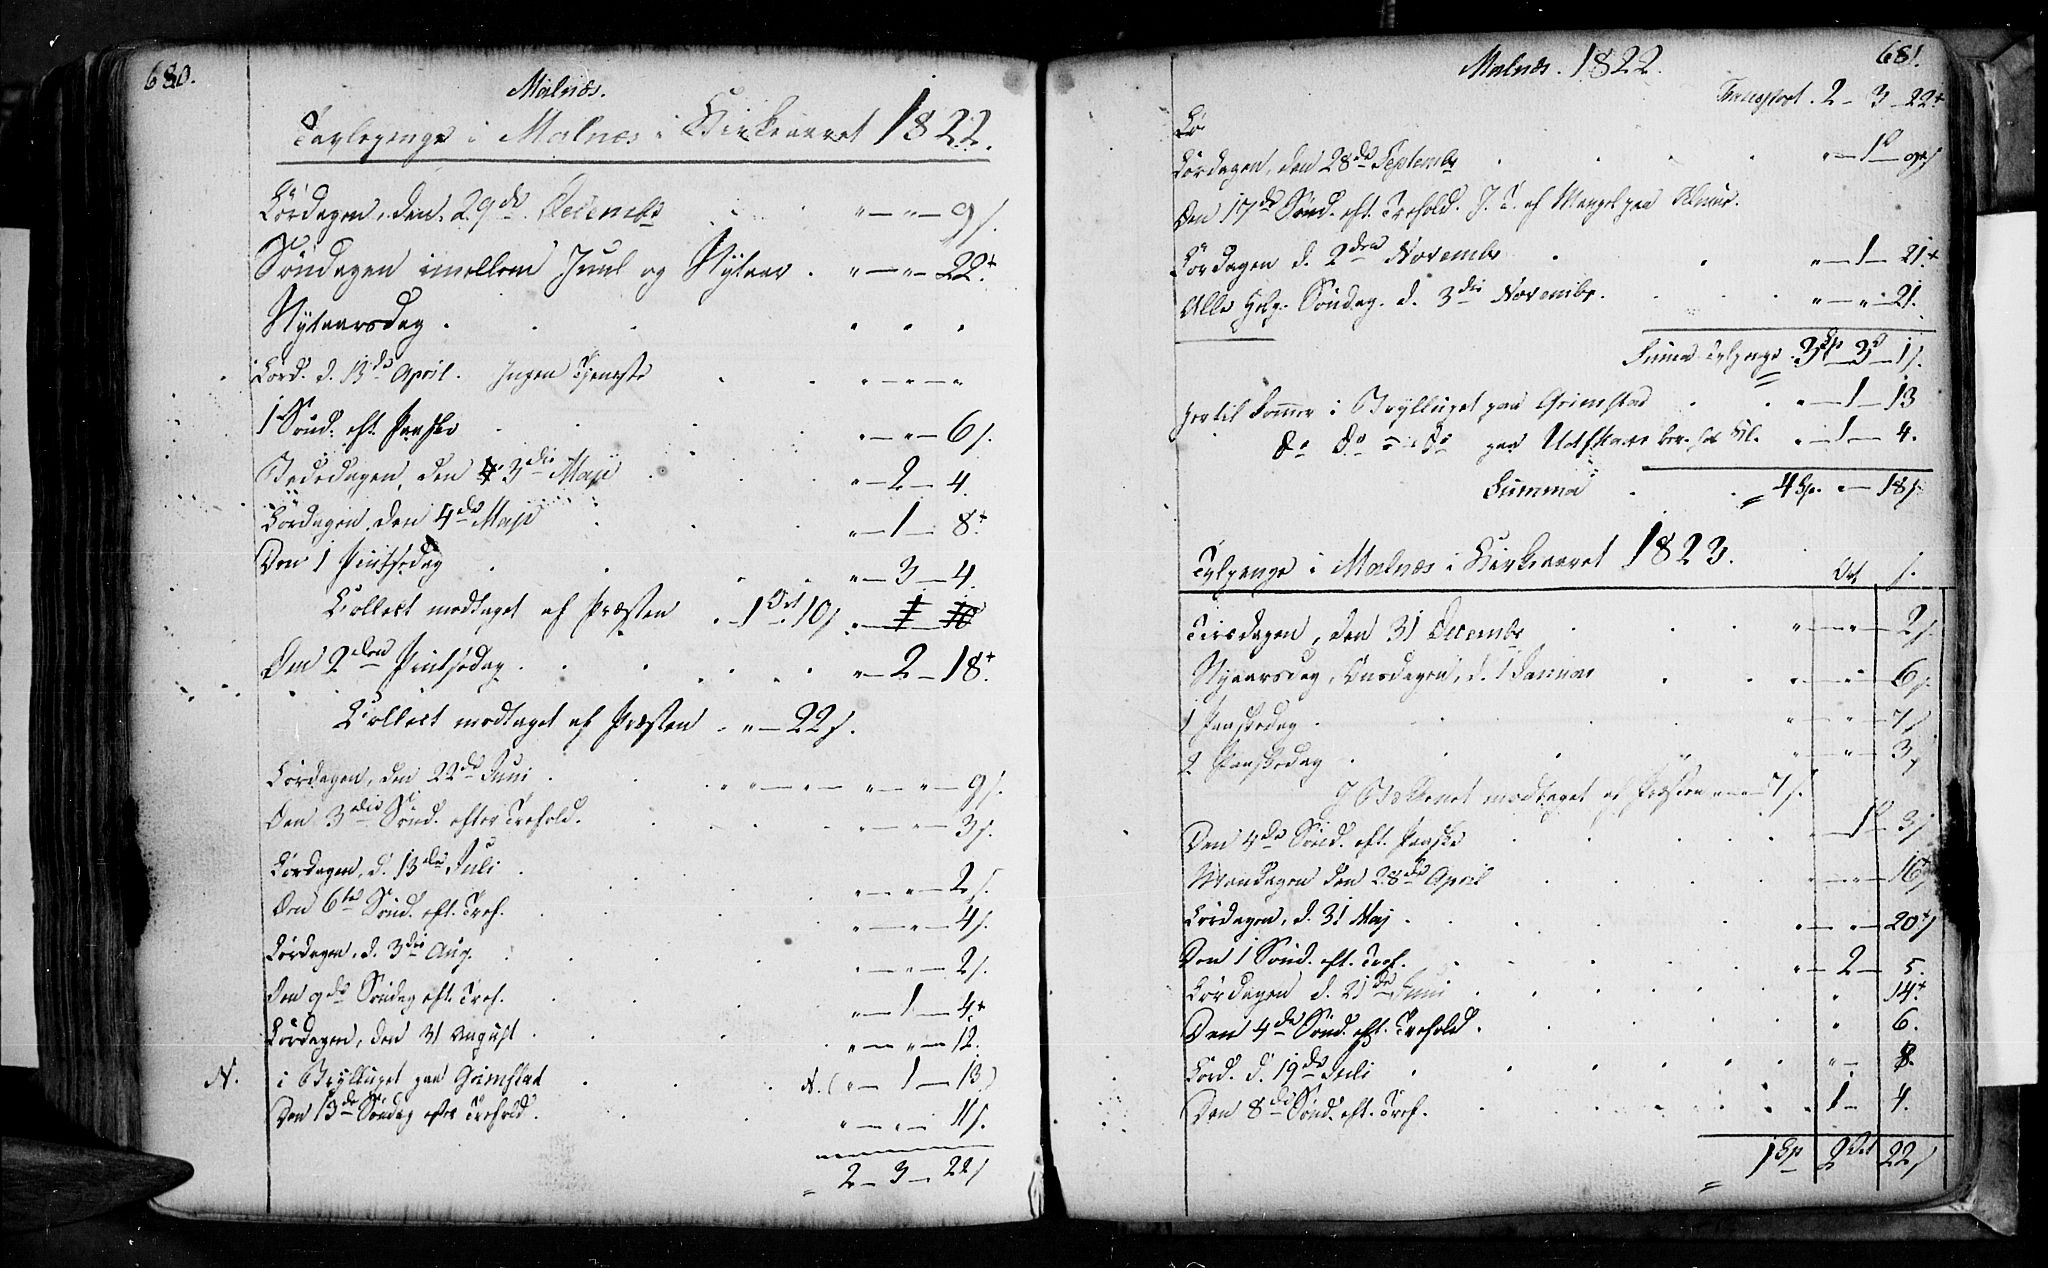 680.
Malnæs.
Tavlepenge i Malnæs i Kirkeaaret 1822.
Lørdagen, den 29de Decembr " — " — 9 s.
Søndagen imellem Juul og Nytaar . " — " — 22+
Nytaarsdag . . . " " "
Lørd. d. 13de April. Ingen Tjeneste . . " — " — "
1 Sønd. eft. Paaske . . . " — " — 6 s.
Bededagen, den 3die Maji . . . " — 2 — 4.
Lørdagen, den 4de Maji . . . " — 1 — 8+
Den 1 Pintsedag . . . " — 3 — 4.
Collect modtaget af Præsten . " 1 Ort 10 s. " — 1 — 10
Den 2den Pintsedag . . . . " — 2 — 18+
Collect modtaget af Præsten . " — 22 s.
Lørdagen, den 22de Juni . . " — " — " — " — 9 s.
Den 3die Sønd. efter Trefold. . . . " — " — 3 s.
Lørdagen, d. 13de Juli . . . " — " — 2 s.
Den 6te Sønd. eft. Tref. . . . " — " — 4 s.
Lørdagen, d. 3die Aug. . . . " — " — 2 s.
Den 9de Søndag eft. Tref. . . . " — 1 — 4+
Lørdagen, den 31 August . . . " — " — 12.
N. i Brylluppet paa Grimstad . . . N. ( " — 1 — 13 )
Den 13de Søndag efter Trefold. . . " — " — 11 s.
= 2 — 3 — 22 s
Malnæs. 1822.
681.
Transport. 2 — 3 — 22+
Lø
Lørdagen, den 28de Septembr . . . " — 1 — 9 s
Den 17de Sønd. eft. Trefold. I. T. af Mangel paa Almue.
Lørdagen d. 2den Novembr . . " — 1 — 21+
Alle Helg. Søndag. d. 3die Novembr. . . " — " — 21.
Summa Tvlpenge 3 Sp — 3 — 1 s.
Hertil kommer i Brylluppet paa Grimstad . . " — 1 — 13
do do — do paa . " — 1 — 4.
Summa . . = 4 Sp. " — 18 s
Tvlpenge i Malnæs i Kirkeaaret 1823.
Ort s.
Tirsdagen, den 31 Decembr . . . " — " — 2 s.
Nytaarsdag, Onsdagen, d. 1 Januar . . " — " — 6 s.
1 Paaskedag . . . " — " — 7 s
2 Paaskedag . . . " — " — 3 s
I Bækkenet modtaget af Præsten " — " — 7 s.
Den 4de Sønd. eft. Paaske . . . " — 1 — 3 s
Mandagen den 28de April . . . " — " — 16+ s
Lørdagen, d. 31 Maj . . . " — " — 20+ s
Den 1 Sønd. eft. Tref. . . . " — 2 — 5.
Lørdagen d. 21de Juni . . . " 14+
Den 4de Sønd. eft. Trefold. . . . " 6.
Lørd. d. 19de Juli . . . " — 8.
Den 8de Sønd. eft. Tref. . . . 1 — 4.
= 1 Sp 2 Ort 22 s